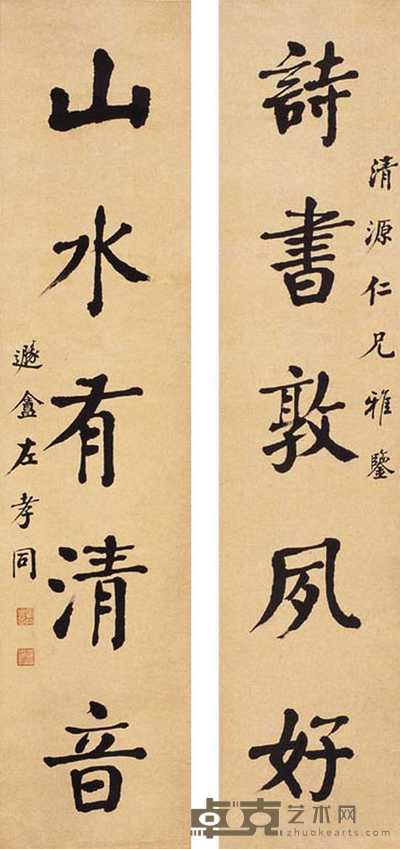 清源仁兄雅鑒
詩書敦夙好
山水有清音
遯盦左孝同
卓克艺术网
zhuokearts.com